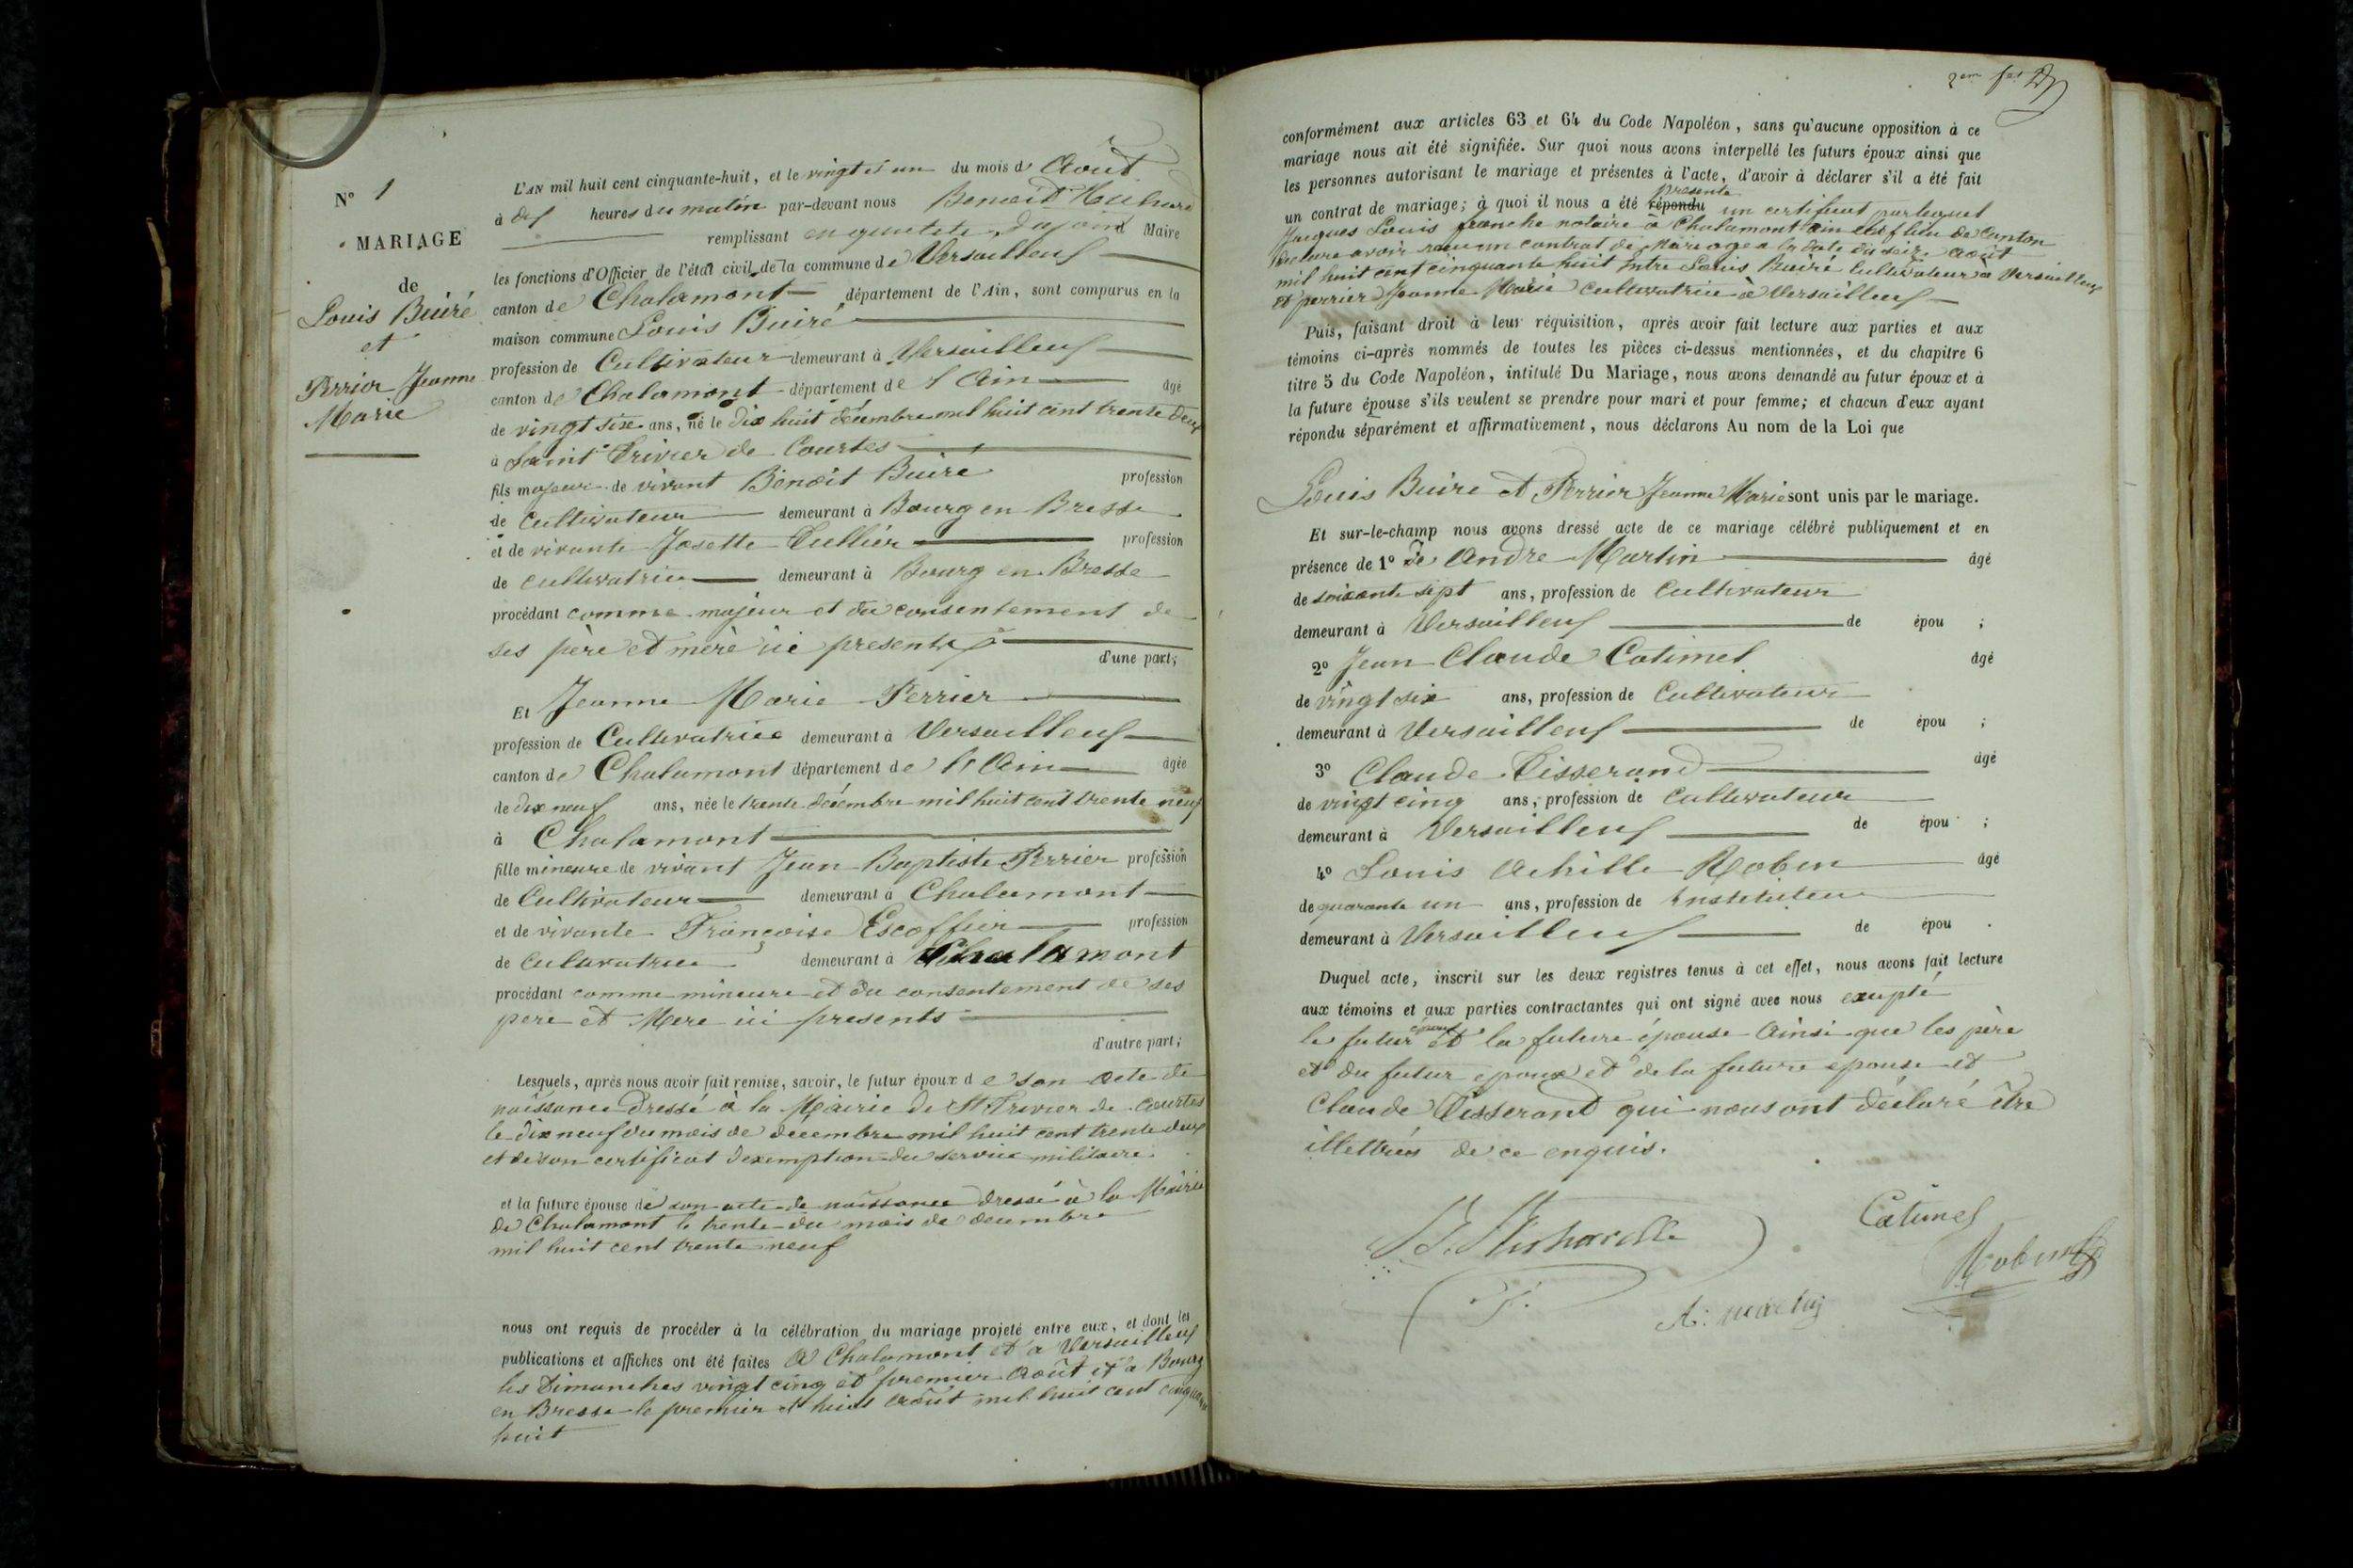 N° 1
MARIAGE
de
Louis Buiré
et
Perrier Jeanne
Marie
L'AN mil huit cent cinquante-huit, et le vingt et un du mois d Août
à dix heures du matin par-devant nous Benoit
remplissant en qualité d'ajoint Maire
les fonctions d'Officier de l'état civil de la commune de Versailleux
canton de Chalamont département de l'Ain, sont comparus en la
maison commune Louis Buiré
profession de Cultivateur demeurant à Versailleux
canton de Chalamont département de l'Ain âgé
de vingt six ans, né le dix huit décembre mil huit cent trente deux
à Saint Trivier de Courtes
fils majeur de vivant Benoit Buiré profession
de Cultivateur demeurant à Bourg en Bresse
et de vivante Josette Tullier profession
de cultivatrice demeurant à Bourg en Bresse
procédant comme majeur et du consentement de
ses père et mère ici presents
d'une part;
Et Jeanne Marie Perrier
profession de Cultivatrice demeurant à Versailleux
canton de Chalamont département de l'Ain âgée
de dix neuf ans, née le trente décembre mil huit cent trente neuf
à Chalamont
fille mineure de vivant Jean Baptiste Perrier profession
de Cultivateur demeurant à Chalamont
et de vivante Françoise Escoffier profession
de cultivatrice demeurant à Chalamont
procédant comme mineure et du consentement de ses
pere et Mere ici presents
d'autre part;
Lesquels, après nous avoir fait remise, savoir, le futur époux de son acte de
naissance dressé à la Mairie de St Trivier de Courtes
le dix neuf du mois de décembre mil huit cent trente deux
et de son certificat d'exemption du service militaire.
et la future épouse de son acte de naissance dressé à la Mairie
de Chalamont le trente du mois de decembre
mil huit cent trente neuf
nous ont requis de procéder à la célébration du mariage projeté entre eux, et dont les
publications et affiches ont été faites à Chalamont et à Versailleux
les Dimanches vingt cinq et premier Août et à Bourg
en Bresse le premier et huit août mil huit cent cinquante
huit
conformément aux articles 63 et 64 du Code Napoléon, sans qu'aucune opposition à ce
mariage nous ait été signifiée. Sur quoi nous avons interpellé les futurs époux ainsi que
les personnes autorisant le mariage et présentes à l'acte, d'avoir à déclarer s'il a été fait
un contrat de mariage; à quoi il nous a été répondu presenté un certificat par lequel
Jacques Louis franche notaire à Chalamont ain chef lieu de Canton
declare avoir reçu un contrat de Mariage a la date du seize Août
mil huit cent cinquante huit Entre Louis Buiré Cultivateur à Versailleux
et perrier Jeanne Marie Cultivatrice à Versailleux
Puis, faisant droit à leur réquisition, après avoir fait lecture aux parties et aux
témoins ci-après nommés de toutes les pièces ci-dessus mentionnées, et du chapitre 6
titre 5 du Code Napoléon, intitulé Du Mariage, nous avons demandé au futur époux et à
la future épouse s'ils veulent se prendre pour mari et pour femme; et chacun d'eux ayant
répondu séparément et affirmativement, nous déclarons Au nom de la Loi que
Louis Buire et Perrier Jeanne Marie sont unis par le mariage.
Et sur-le-champ nous avons dressé acte de ce mariage célébré publiquement et en
présence de 1° de Andre Martin âgé
de soixante sept ans, profession de Cultivateur
demeurant à Versailleux de épou ;
2° Jean Claude Catimel âgé
de vingt six ans, profession de Cultivateur
demeurant à Versailleux de épou ;
3° Claude Tisserand âgé
de vingt cinq ans, profession de Cultivateur
demeurant à Versailleux de épou ;
4° Louis Achille Robin âgé
de quarante un ans, profession de Instituteur
demeurant à Versailleux de épou .
Duquel acte, inscrit sur les deux registres tenus à cet effet, nous avons fait lecture
aux témoins et aux parties contractantes qui ont signé avec nous excepté
le futur époux et la future épouse Ainsi que les père
et du futur époux et de la future epouse et
Claude Tisserand qui nous ont déclaré être
illettrés de ce enquis.
Catimel
Robin
A. martin